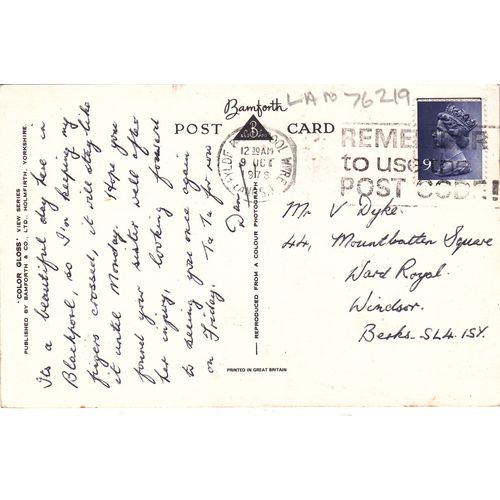 Bamforth
POST CARD
LAN 76219
FYLDE BLACKPOOL WYRE
12 30AM
9 OCT
1978
REMEMBER
to use the
POST CODE!
9P
'COLOR GLOSS' VIEW SERIES
PUBLISHED BY BAMFORTH & CO., LTD., HOLMFIRTH, YORKSHIRE.
Its a beautiful day here in
Blackpool, so I'm keeping my
figers crossed, it will stay like
it until Monday. Hope you
found your sister well after
her injury, looking forward
to seeing you once again
on Friday. Ta Ta for now
REPRODUCED FROM A COLOUR PHOTOGRAPH
PRINTED IN GREAT BRITAIN
Mr V Dyke.
44, Mountbatten Square
Ward Royal.
Windsor.
Berks. SL4. 1SY.